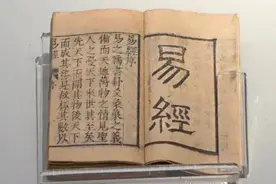 易經
易經序
易之爲書卦爻彖象之義
備而天地萬物之情見聖
人之憂天下來世其至矣
先天下而開其物後天下
而成其務是故極其數以